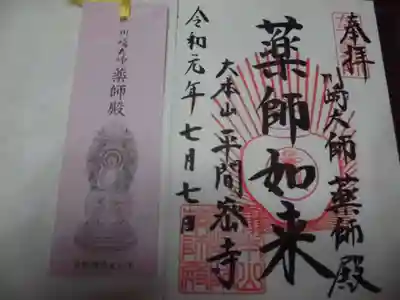 奉拝
川崎大師薬師殿
薬師如来
大本山平間寺
令和元年七月七日
川崎大師
薬師殿